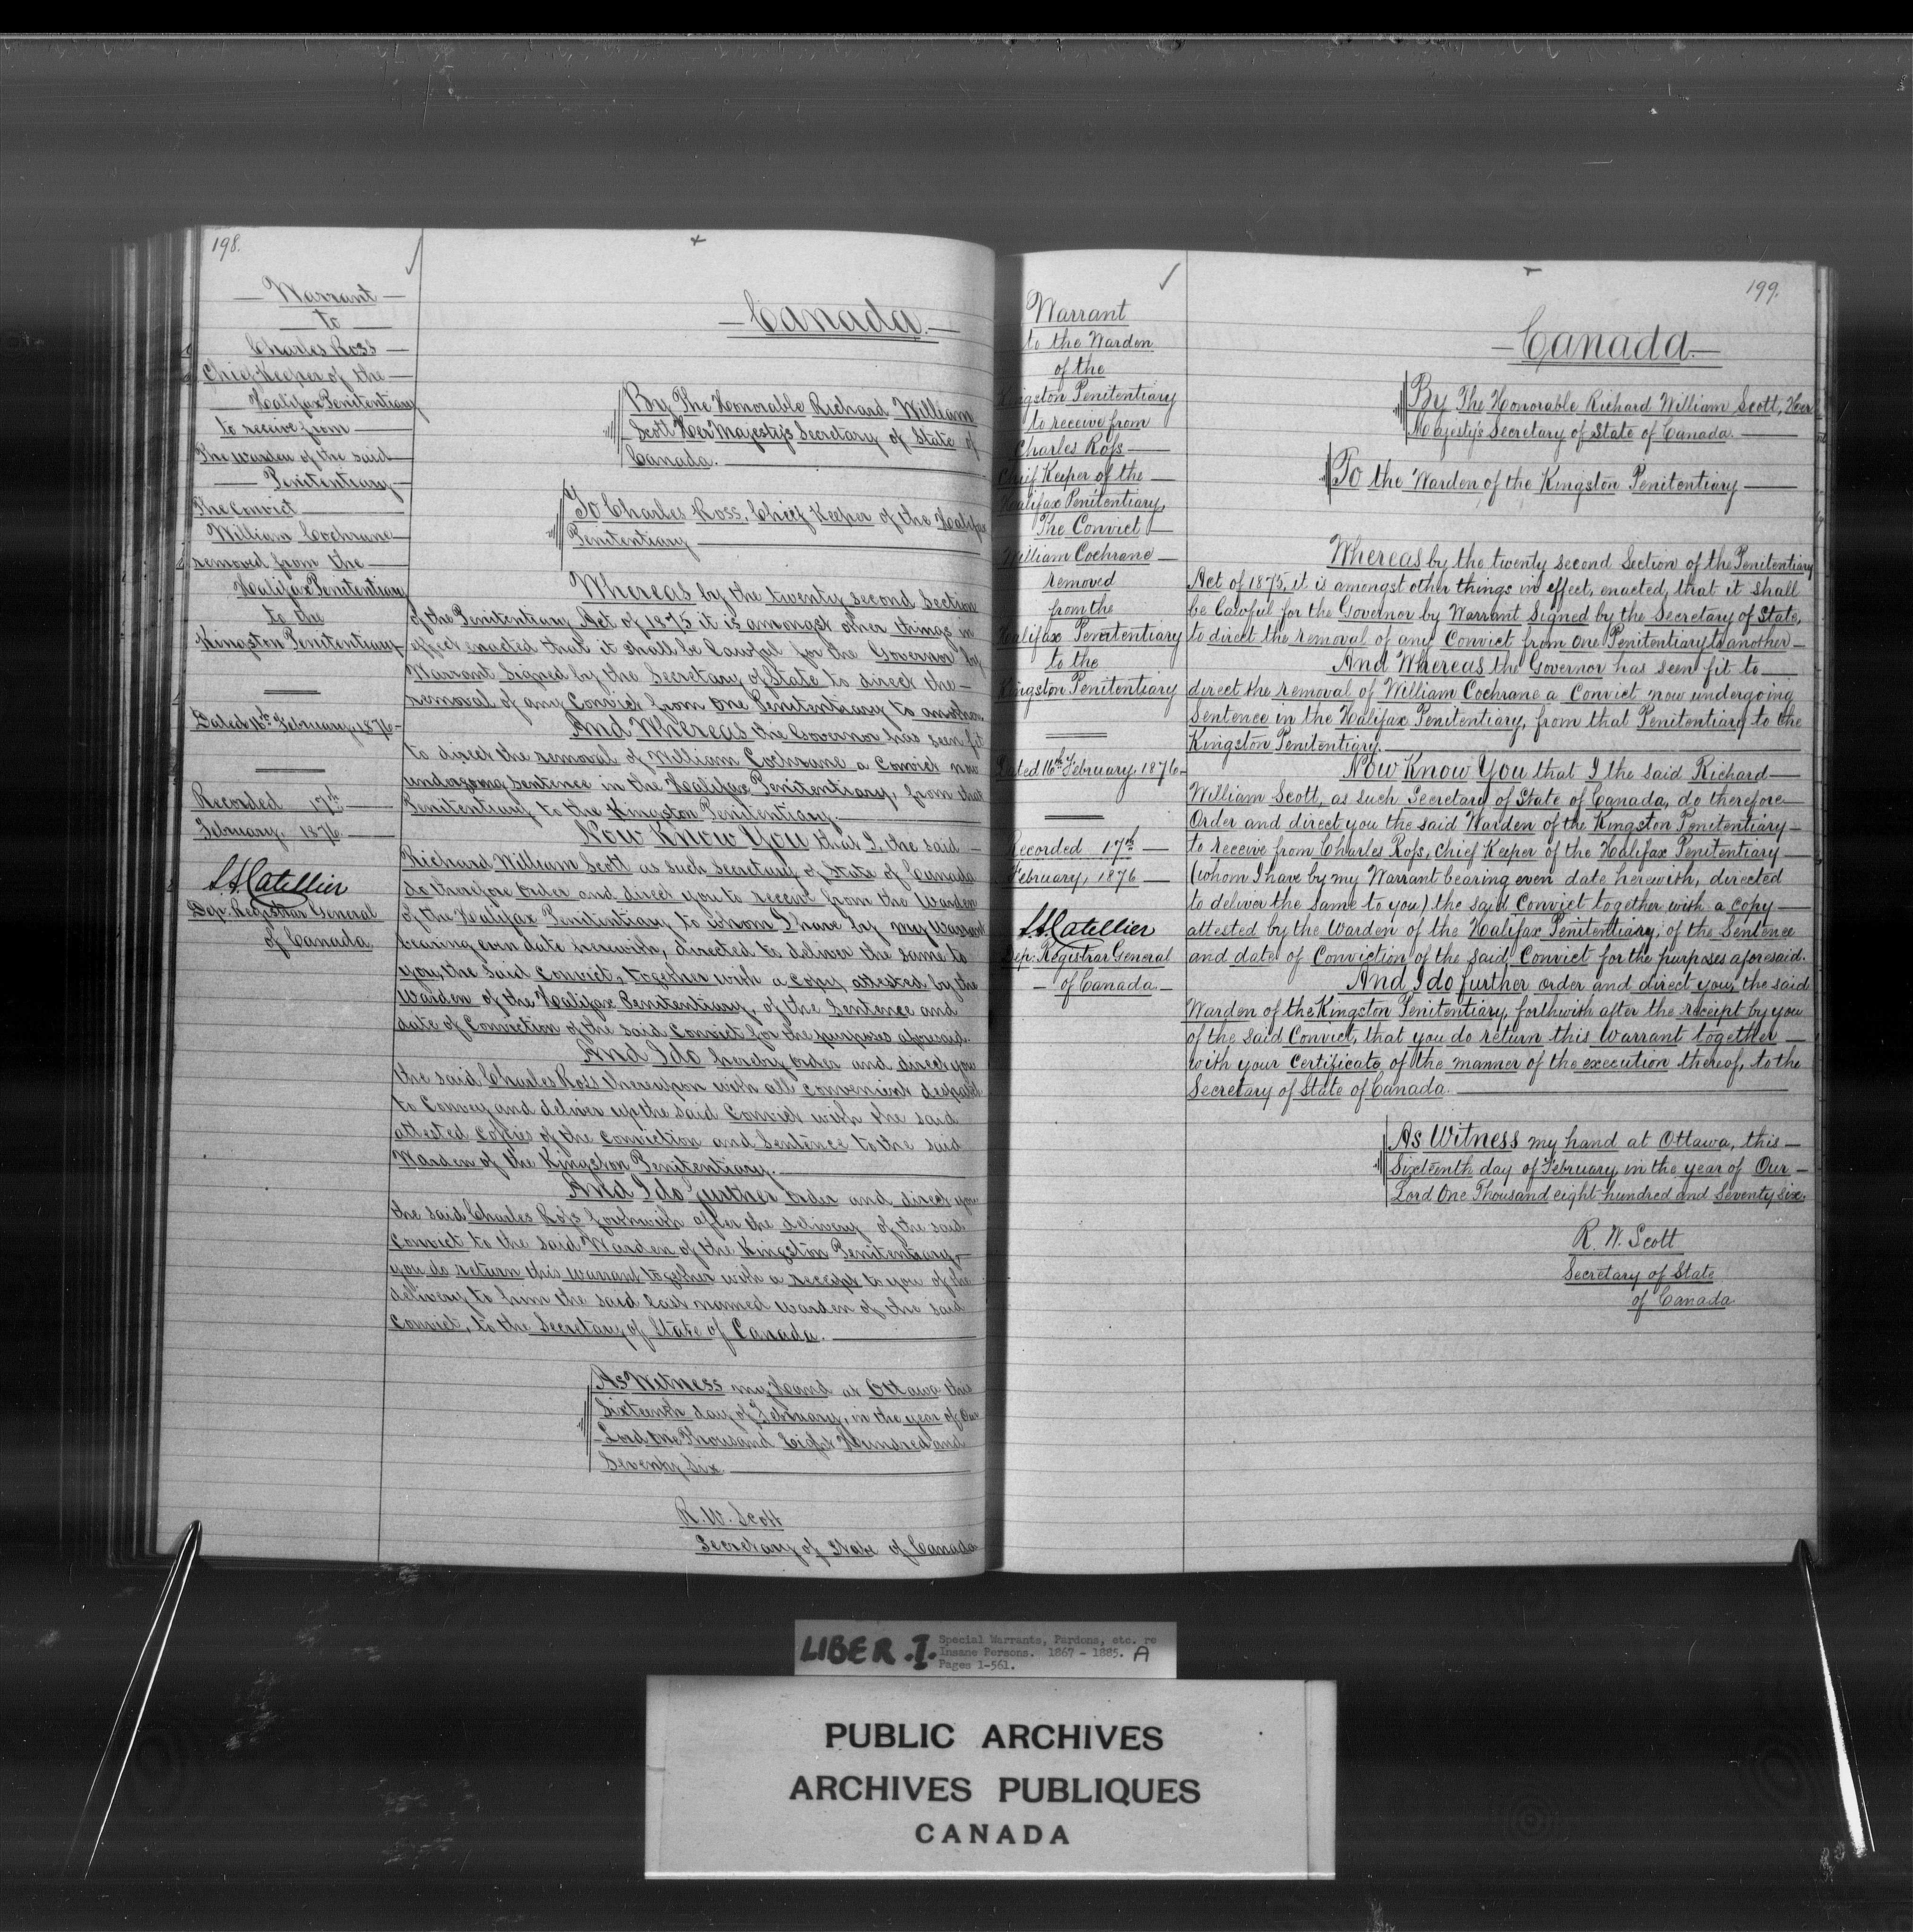 198.
— Warrant —
— to —
Charles Ross —
Chief Keeper of the —
— Halifax Penitentiary
to receive from —
The Warden of the said —
— Penitentiary —
The Convict —
William Cochrane —
removed from the —
Halifax Penitentiary
to the
Kingston Penitentiary
Dated 16th February, 1876 —
Recorded 17th —
February, 1876 —
Dep. Registrar General
of Canada
— Canada. —
By The Honorable Richard William
Scott Her Majesty's Secretary of State of
Canada. —
To Charles Ross, Chief Keeper of the Halifax
Penitentiary —
Whereas by the twenty second Section
of the Penitentiary Act of 1875 it is amongst other things in
effect enacted that it shall be lawful for the Governor by
Warrant Signed by the Secretary of State to direct the —
removal of any Convict from one Penitentiary to another
And Whereas the Governor has seen fit
to direct the removal of William Cochrane a Convict now
undergoing Sentence in the Halifax Penitentiary, from that
Penitentiary to the Kingston Penitentiary. —
Now Know You that I, the said —
Richard William Scott as such Secretary of State of Canada
do therefore Order and direct you to receive from the Warden
of the Halifax Penitentiary to whom I have by my Warrant
bearing even date herewith, directed to deliver the same to
you, the said Convict, together with a Copy attested by the
Warden of the Halifax Penitentiary, of the Sentence and
date of Conviction of the said Convict for the purposes aforesaid.
And I do hereby order and direct you
the said Charles Ross thereupon with all convenient despatch
to Convey and deliver up the said Convict with the said
attested Copies of the Conviction and Sentence to the said
Warden of the Kingston Penitentiary. —
And I do further order and direct you
the said Charles Ross forthwith after the delivery of the said
Convict to the said Warden of the Kingston Penitentiary,
you do return this warrant together with a receipt to you of the
delivery to him the said last named Warden of the said
Convict, to the Secretary of State of Canada. —
As Witness my hand at Ottawa this
Sixteenth day of February, in the year of Our
Lord One Thousand Eight Hundred and
Seventy Six —
R. W. Scott
Secretary of State of Canada
199.
Warrant
to the Warden
of the
Kingston Penitentiary
to receive from
Charles Ross —
Chief Keeper of the —
Halifax Penitentiary,
The Convict —
William Cochrane —
removed
from the
Halifax Penitentiary
to the
Kingston Penitentiary
Dated 16th February 1876 —
Recorded 17th —
February, 1876 —
Dep. Registrar General
— of Canada —
— Canada. —
By The Honorable Richard William Scott, Her
Majesty's Secretary of State of Canada. —
To the Warden of the Kingston Penitentiary —
Whereas by the twenty second Section of the Penitentiary
Act of 1875, it is amongst other things in effect, enacted, that it shall
be lawful for the Governor by Warrant Signed by the Secretary of State,
to direct the removal of any Convict from one Penitentiary to another —
And Whereas the Governor has seen fit to —
direct the removal of William Cochrane a Convict now undergoing
Sentence in the Halifax Penitentiary, from that Penitentiary to the
Kingston Penitentiary. —
Now Know You that I the said Richard —
William Scott, as such Secretary of State of Canada, do therefore —
Order and direct you the said Warden of the Kingston Penitentiary —
to receive from Charles Ross, Chief Keeper of the Halifax Penitentiary —
(whom I have by my Warrant bearing even date herewith, directed
to deliver the same to you) the said Convict together with a copy —
attested by the Warden of the Halifax Penitentiary, of the Sentence
and date of Conviction of the said Convict for the purposes aforesaid.
And I do further order and direct you, the said
Warden of the Kingston Penitentiary, forthwith after the receipt by you
of the said Convict, that you do return this Warrant together —
with your Certificate of the manner of the execution thereof, to the
Secretary of State of Canada. —
As Witness my hand at Ottawa, this —
Sixteenth day of February in the year of Our —
Lord One Thousand eight hundred and Seventy six.
R. W. Scott
Secretary of State
of Canada
LIBER .I. Special Warrants, Pardons, etc. re
Insane Persons. 1867 - 1885. A
Pages 1-561.
PUBLIC ARCHIVES
ARCHIVES PUBLIQUES
CANADA